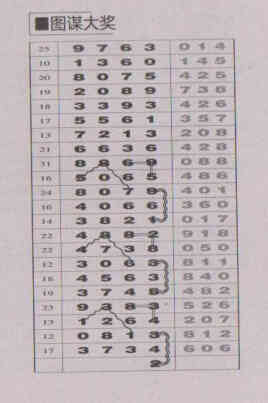 ■图谋大奖
25 9 7 6 3 0 1 4
10 1 3 6 0 1 4 5
20 8 0 7 5 4 2 5
19 2 0 8 9 7 3 6
18 3 3 9 3 4 2 6
17 5 5 6 1 3 5 7
13 7 2 1 3 2 0 8
21 6 6 3 6 4 2 8
31 8 8 6 9 0 8 8
16 5 0 6 5 4 8 6
24 8 0 7 9 4 0 1
16 4 0 6 6 3 6 0
14 3 8 2 1 0 1 7
22 4 8 8 2 9 1 8
22 4 7 3 8 0 5 0
12 3 0 6 3 8 1 1
18 4 5 6 3 8 4 0
19 3 7 4 5 4 8 2
23 9 3 8 3 5 2 6
13 1 2 6 4 2 0 7
12 0 8 1 3 8 1 2
17 3 7 3 4 6 0 6
2